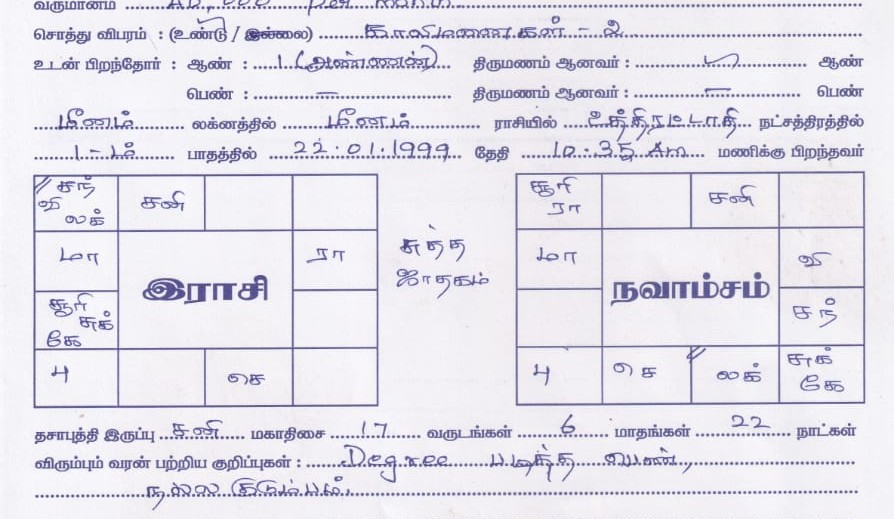 வருமானம் 40,000 per month
சொத்து விபரம் : (உண்டு / இல்லை) காலிமனைகள் - 2
உடன் பிறந்தோர் : ஆண் : 1 (அண்ணன்) திருமணம் ஆனவர் : ஆண்
பெண் : — திருமணம் ஆனவர் : — பெண்
மீனம் லக்னத்தில் மீனம் ராசியில் உத்திரட்டாதி நட்சத்திரத்தில்
1-ம் பாதத்தில் 22.01.1999 தேதி 10:35 Am மணிக்கு பிறந்தவர்
சந் வி லக் சனி
மா ரா
சூரி சுக் கே
இராசி
பு செ
சுத்த
ஜாதகம்
சூரி ரா சனி
மா வி
நவாம்சம்
சந்
பு செ லக் சுக் கே
தசாபுத்தி இருப்பு சனி மகாதிசை 17 வருடங்கள் 6 மாதங்கள் 22 நாட்கள்
விரும்பும் வரன் பற்றிய குறிப்புகள் : Degree படித்த பெண்,
நல்ல குடும்பம்.